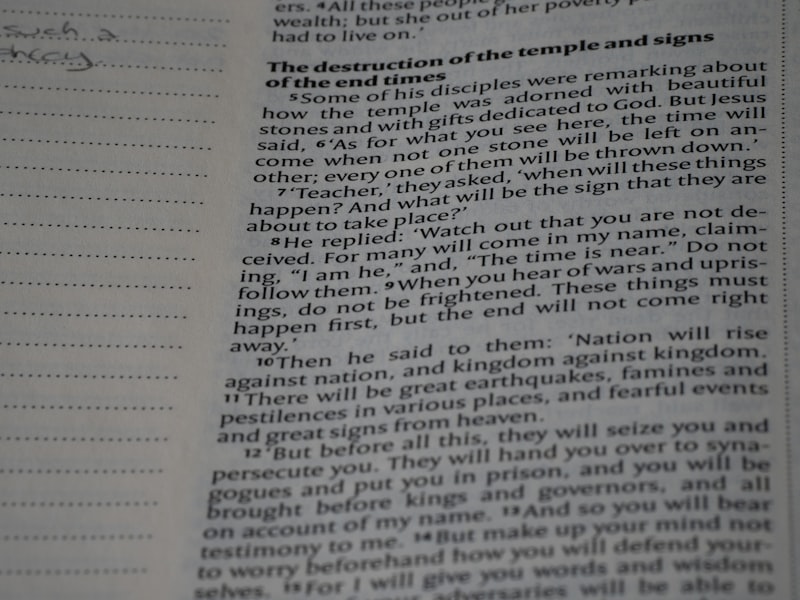 such a
ers. 4All these people
wealth; but she out of her poverty
had to live on.'
The destruction of the temple and signs
of the end times
5Some of his disciples were remarking about
how the temple was adorned with beautiful
stones and with gifts dedicated to God. But Jesus
said, 6'As for what you see here, the time will
come when not one stone will be left on an-
other; every one of them will be thrown down.'
7'Teacher,' they asked, 'when will these things
happen? And what will be the sign that they are
about to take place?'
8He replied: 'Watch out that you are not de-
ceived. For many will come in my name, claim-
ing, "I am he," and, "The time is near." Do not
follow them. 9When you hear of wars and upris-
ings, do not be frightened. These things must
happen first, but the end will not come right
away.'
10Then he said to them: 'Nation will rise
against nation, and kingdom against kingdom.
11There will be great earthquakes, famines and
pestilences in various places, and fearful events
and great signs from heaven.
12'But before all this, they will seize you and
persecute you. They will hand you over to syna-
gogues and put you in prison, and you will be
brought before kings and governors, and all
on account of my name. 13And so you will bear
testimony to me. 14But make up your mind not
to worry beforehand how you will defend your-
selves. 15For I will give you words and wisdom
adversaries will be able to